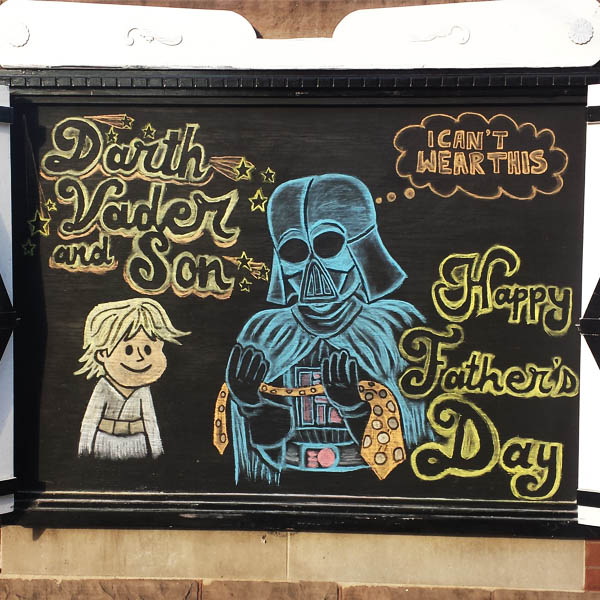 Darth
Vader
and Son
I CAN'T
WEAR THIS
Happy
Father's
Day